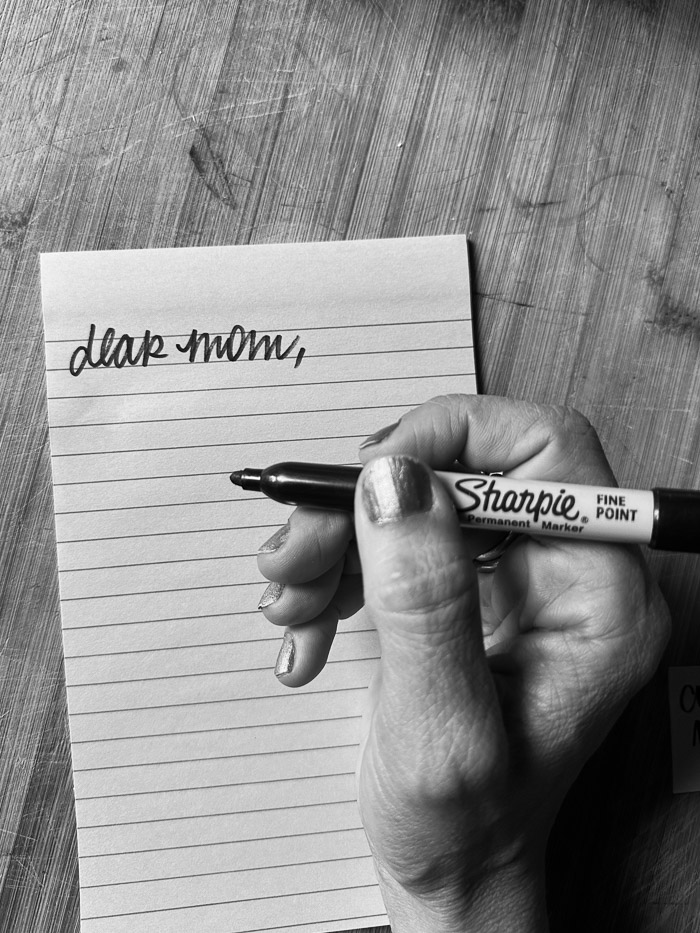 dear mom,
Sharpie® FINE
Permanent Marker POINT